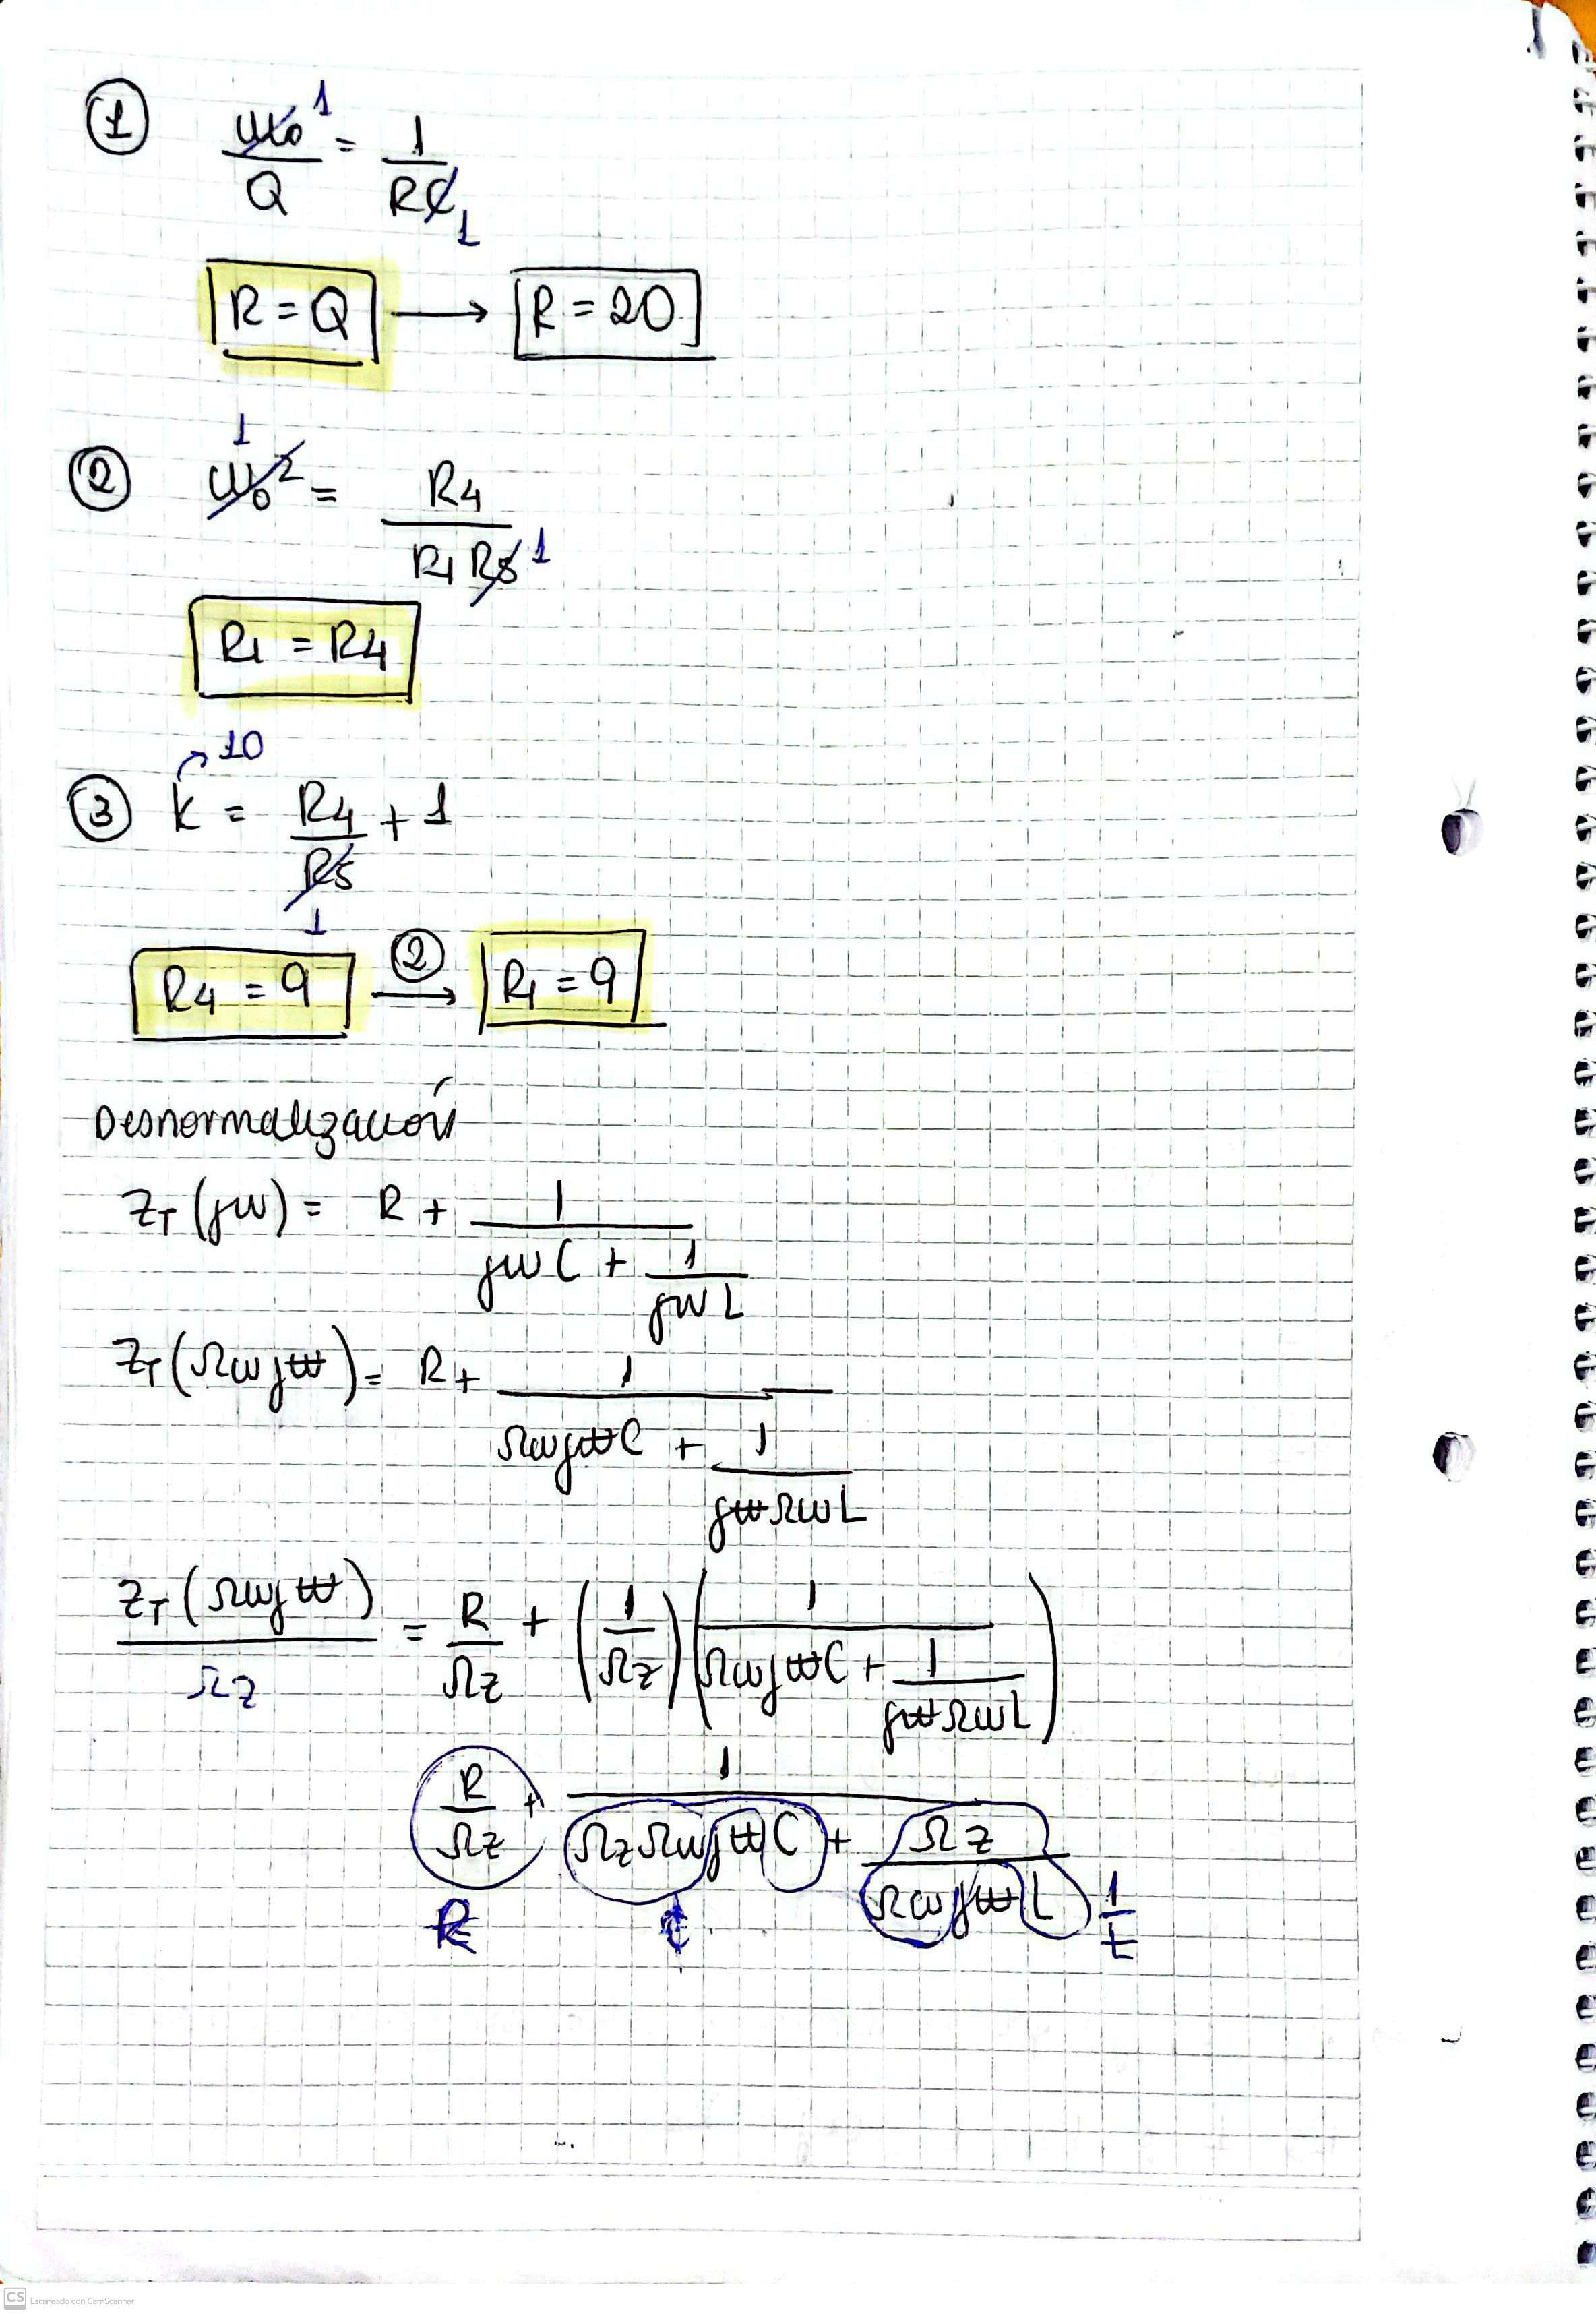 ① ω₀/Q = 1/(RC) 1 1
R = Q → R = 20
② ω₀² = R4/(R1 R5) 1 1
R1 = R4
③ k = R4/R5 + 1 10 1
R4 = 9 ②→ R1 = 9
Desnormalización
Z_T(jω) = R + 1/(jωC + 1/(jωL))
Z_T(Ωω j ω̶) = R + 1/(Ωω j ω̶ C + 1/(j ω̶ Ωω L))
Z_T(Ωω j ω̶)/Ωz = R/Ωz + (1/Ωz)(1/(Ωω j ω̶ C + 1/(j ω̶ Ωω L)))
R/Ωz + 1/(Ωz Ωω j ω̶ C + Ωz/(Ωω j ω̶ L))
R̶ C̶ 1/L̶
CS Escaneado con CamScanner